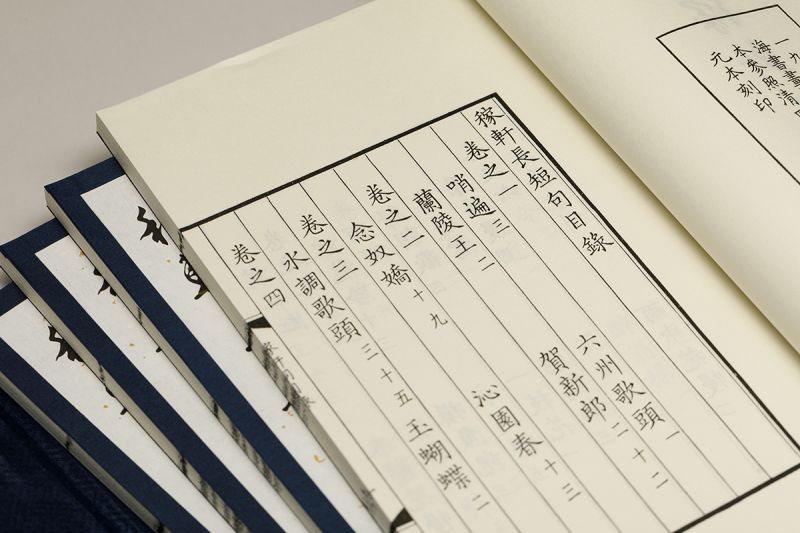 一九
海書畫
本參照清
元本刻印
稼軒長短句目錄
卷之一
哨遍三 六州歌頭一
蘭陵王二 賀新郎二十二
卷之二
念奴嬌十九 沁園春十三
卷之三
水調歌頭三十五 玉蝴蝶二
卷之四